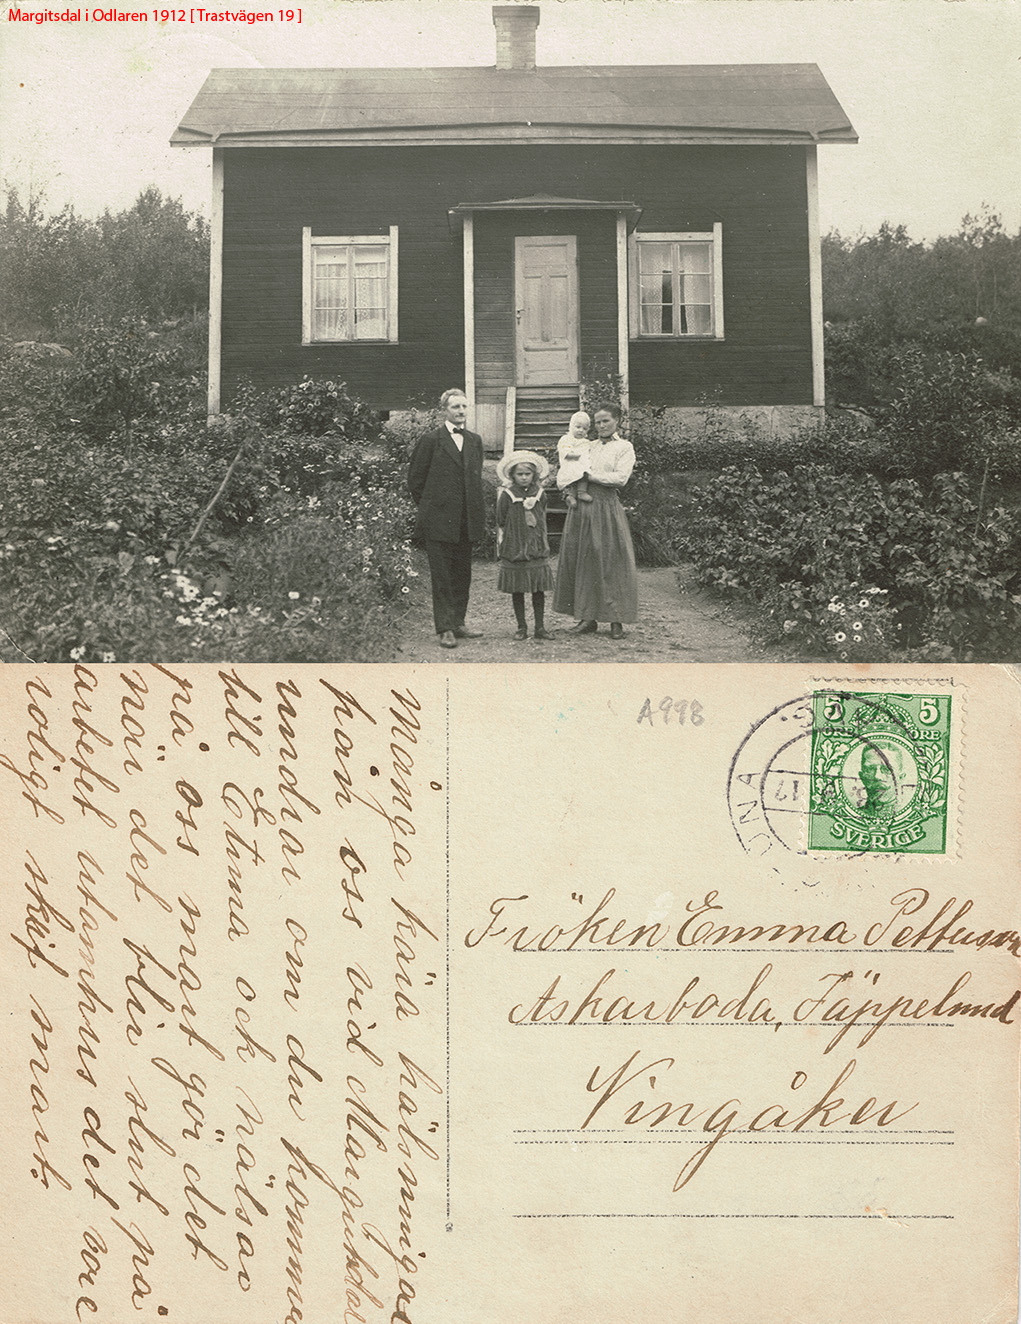 Margitsdal i Odlaren 1912 [Trastvägen 19]
Många kära hälsningar
från oss vid Margitsdal
undrar om du kommer
till Etuna ock hälsar
på oss snart gör det
när det blir slut på
arbetet utomhus det vore
roligt skrif snart.
A998
5 5
ÖRE ÖRE
SVERIGE
TUNA
12
Fröken Emma Pettersson
Askarboda, Läppelund
Vingåker